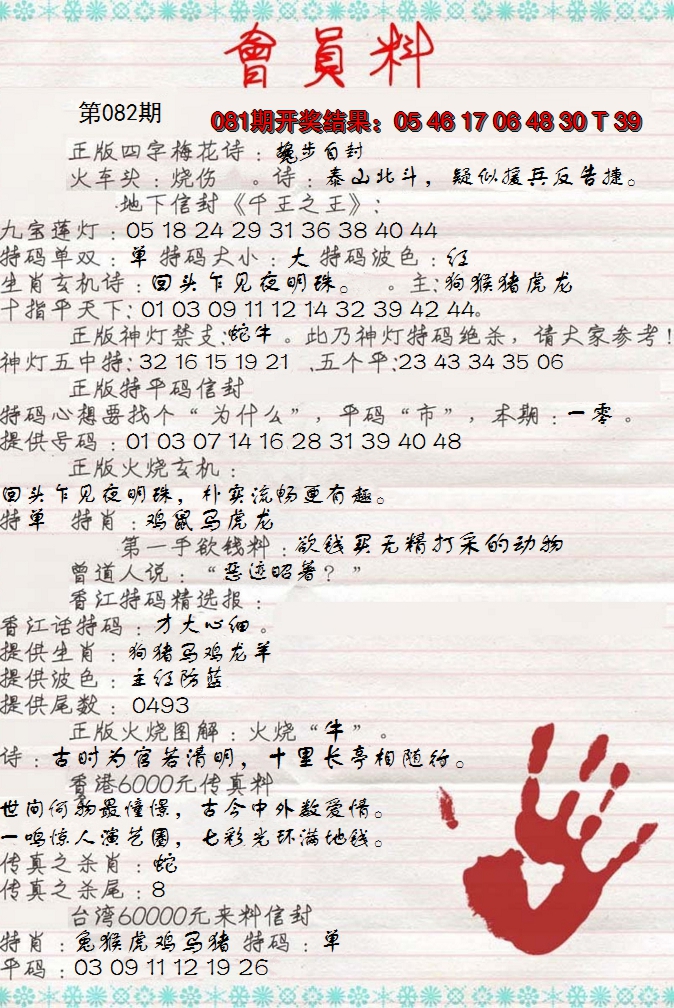 會員料
第082期
081期开奖结果：05 46 17 06 48 30 T 39
正版四字梅花诗：擅步自封
火车头：烧伤 。诗：泰山北斗，疑似援兵反告捷。
地下信封《千王之王》：
九宝莲灯：05 18 24 29 31 36 38 40 44
特码单双：单 特码大小：大 特码波色：红
生肖玄机诗：回头乍见夜明珠。 。主：狗猴猪虎龙
十指平天下：01 03 09 11 12 14 32 39 42 44。
正版神灯禁支：蛇牛 。此乃神灯特码绝杀，请大家参考！
神灯五中特：32 16 15 19 21 .五个平：23 43 34 35 06
正版特平码信封
特码心想要找个“为什么”，平码“市”，本期：一零 。
提供号码：01 03 07 14 16 28 31 39 40 48
正版火烧玄机：
回头乍见夜明珠，朴实流畅更有趣。
特单 特肖：鸡鼠马虎龙
第一手欲钱料：欲钱买无精打采的动物
曾道人说：“恶迹昭著？”
香江特码精选报：
香江话特码：才大心细 。
提供生肖：狗猪马鸡龙羊
提供波色：主红防蓝
提供尾数：0493
正版火烧图解：火烧“牛”。
诗：古时为官若清明，十里长亭相随行。
香港6000元传真料
世间何物最憧憬，古今中外数爱情。
一鸣惊人演艺圈，七彩光环满地钱。
传真之杀肖：蛇
传真之杀尾：8
台湾60000元来料信封
特肖：兔猴虎鸡马猪 特码：单
平码：03 09 11 12 19 26